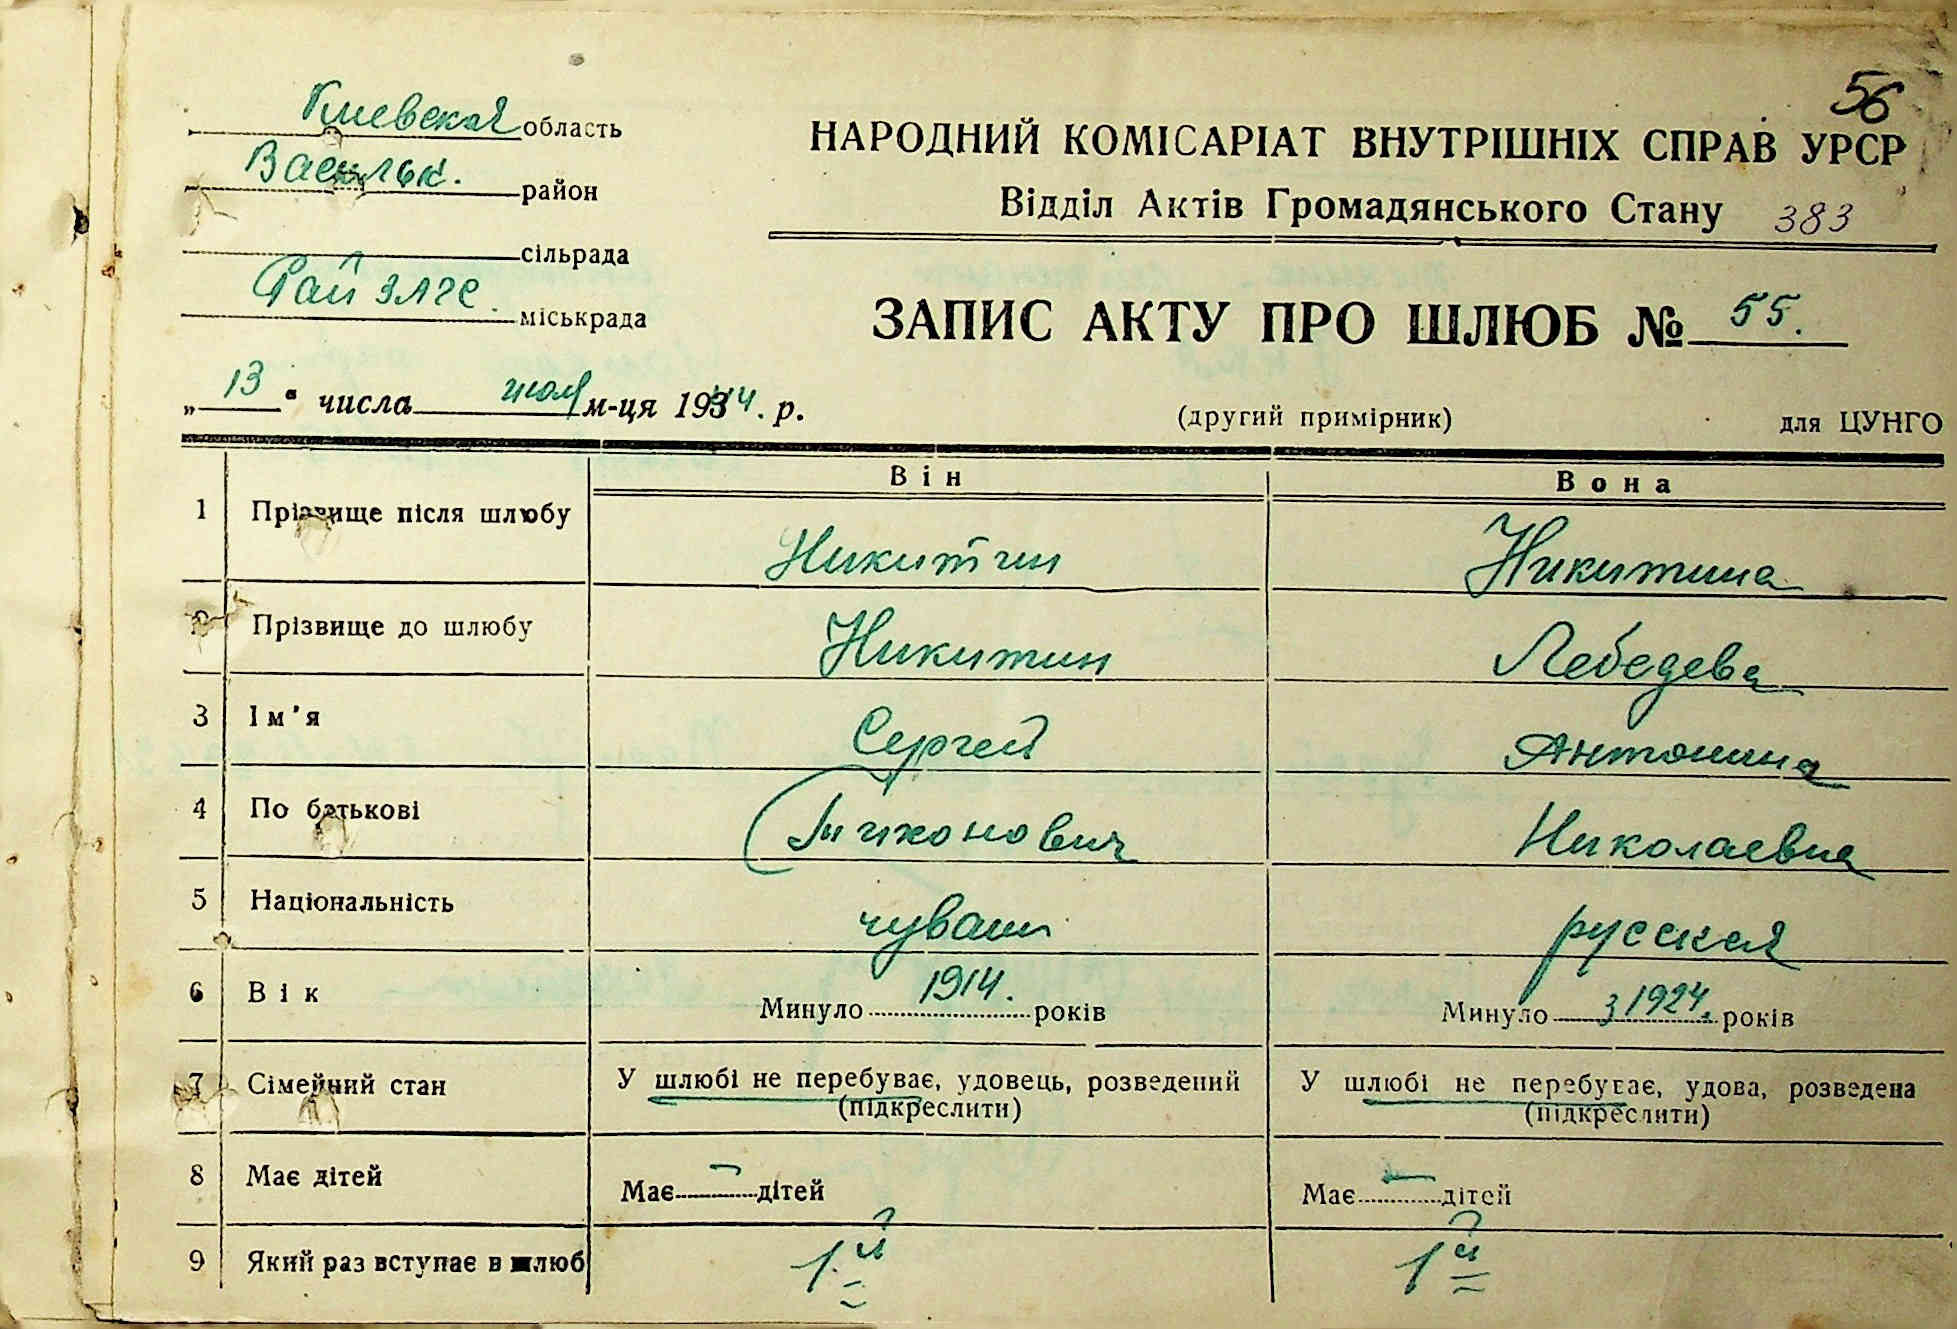 56
Киевская область
Васильк. район
сільрада
Рай ЗАГС. міськрада
НАРОДНИЙ КОМІСАРІАТ ВНУТРІШНІХ СПРАВ УРСР
Відділ Актів Громадянського Стану 383
ЗАПИС АКТУ ПРО ШЛЮБ № 55.
„13“ числа июля м-ця 1944. р.
(другий примірник) для ЦУНГО
Він Вона
1 Прізвище після шлюбу Никитин Никитина
2 Прізвище до шлюбу Никитин Лебедева
3 Ім'я Сергей Антонина
4 По батькові Тихонович Николаевна
5 Національність чуваш русская
6 Вік Минуло 1914. років Минуло з 1924. років
7 Сімейний стан У шлюбі не перебуває, удовець, розведений У шлюбі не перебуває, удова, розведена
(підкреслити) (підкреслити)
8 Має дітей Має — дітей Має — дітей
9 Який раз вступає в шлюб 1й 1й